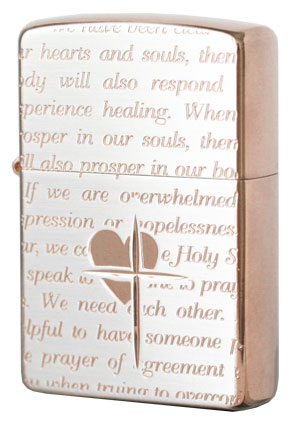 we have been
ur hearts and souls, then
ody will also respond
xperience healing. When
rosper in our souls, then
ll also prosper in our bo
If we are overwhelmed
epression or hopelessness
ar, we ca e Holy S
speak to s to pray
s. We need each other.
lpful to have someone
e prayer of agreement
u when trying to overcom